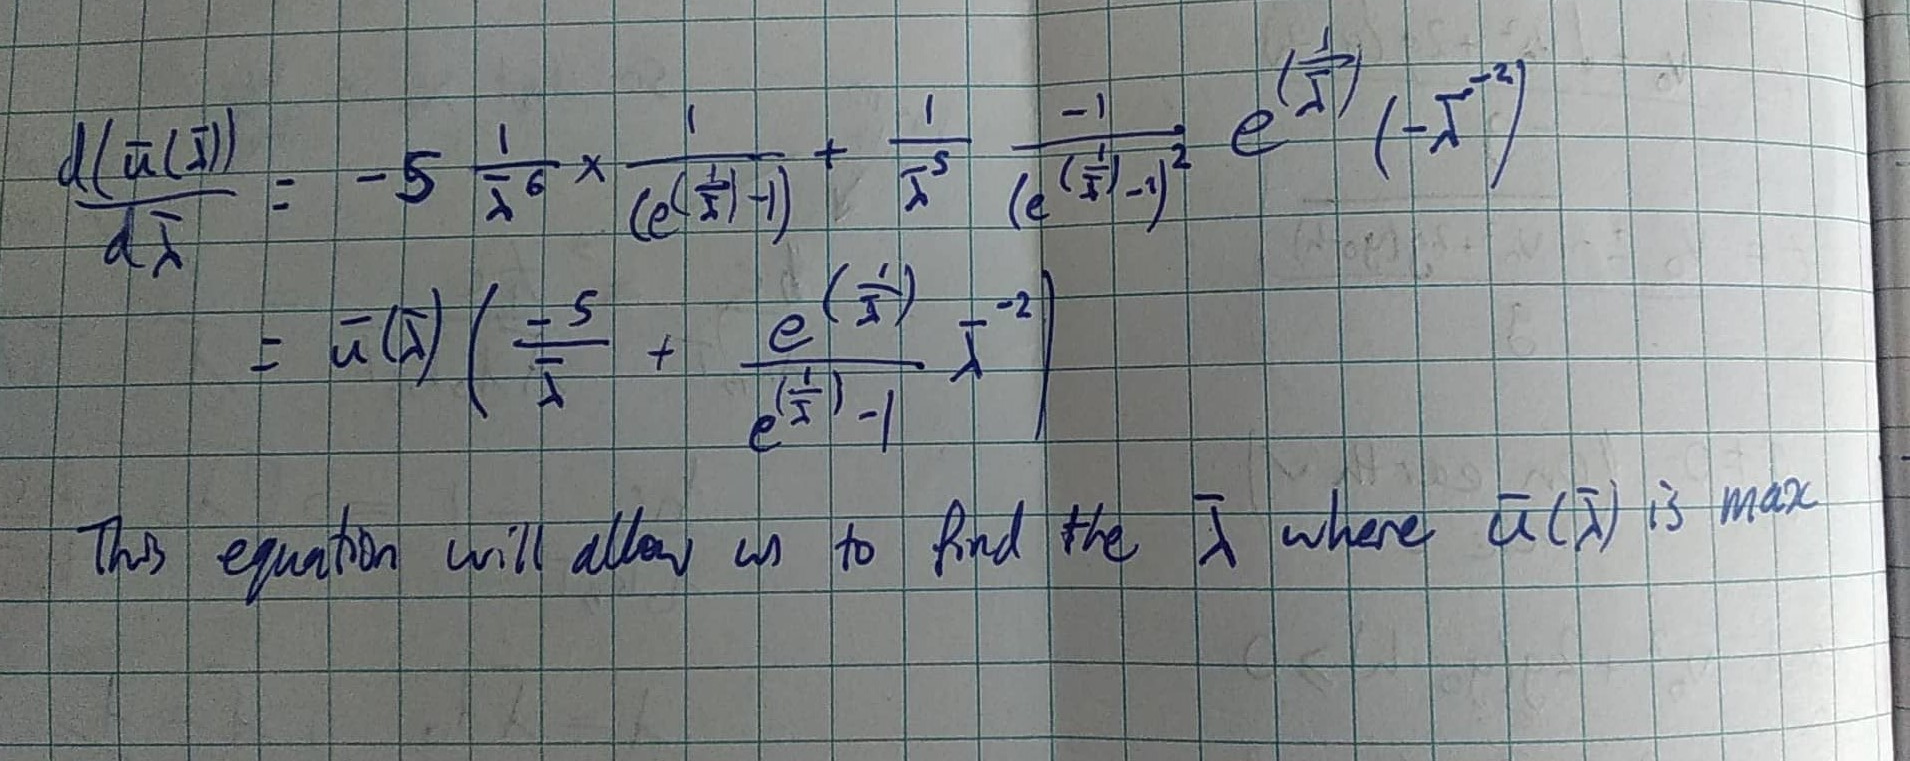 d(ū(λ̄))/dλ̄ = -5 1/λ̄⁶ × 1/(e^(1/λ̄)-1) + 1/λ̄⁵ -1/(e^(1/λ̄)-1)² e^(1/λ̄) (-λ̄⁻²)
= ū(λ̄) (-5/λ̄ + e^(1/λ̄)/(e^(1/λ̄)-1) λ̄⁻²)
This equation will allow us to find the λ̄ where ū(λ̄) is max